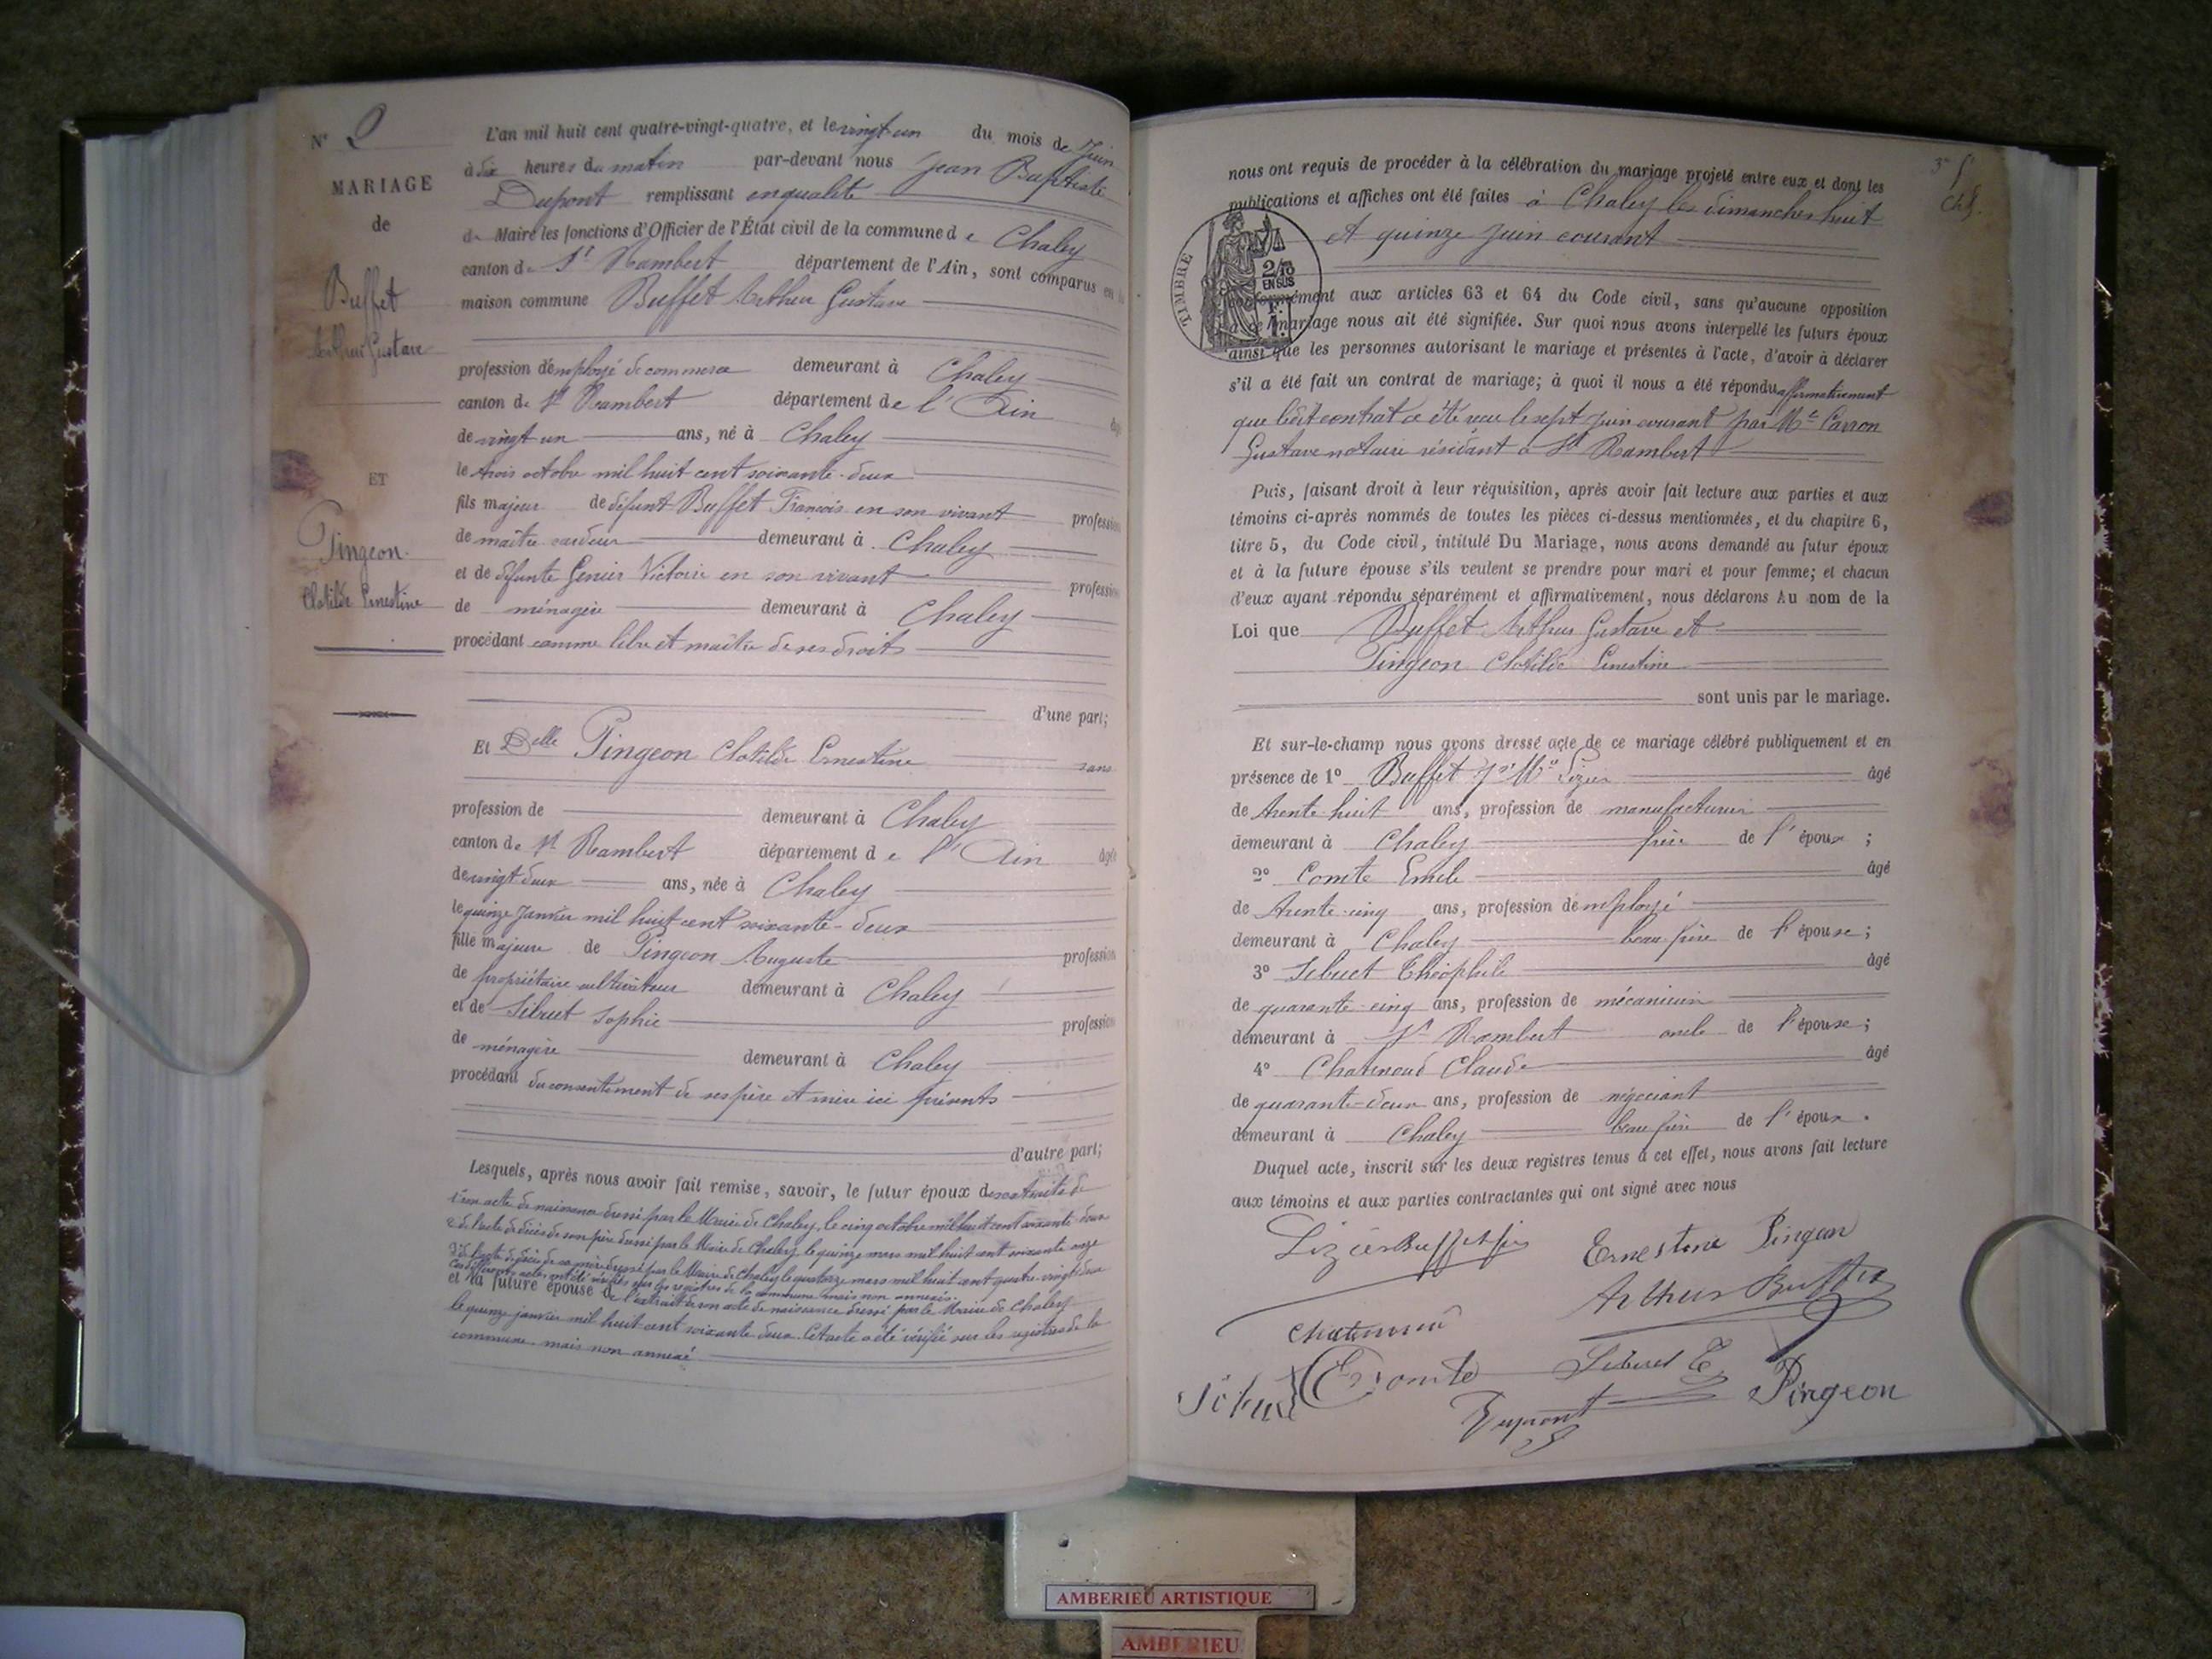 N° 2
MARIAGE
de
Buffet
Arthur Gustave
ET
Pingeon
Clotilde Ernestine
L'an mil huit cent quatre-vingt-quatre, et le vingt un du mois de Juin
à dix heures du matin par-devant nous Jean Baptiste
Dupont remplissant en qualité
de Maire les fonctions d'Officier de l'État civil de la commune de Chaley
canton de St Rambert département de l'Ain, sont comparus en la
maison commune Buffet Arthur Gustave
profession d'employé de commerce demeurant à Chaley
canton de St Rambert département de l'Ain âgé
de vingt un ans, né à Chaley
le trois octobre mil huit cent soixante-deux
fils majeur de défunt Buffet François en son vivant profession
de maître cardeur demeurant à Chaley
et de défunte Genier Victoire en son vivant profession
de ménagère demeurant à Chaley
procédant comme libre et maître de ses droits
d'une part;
Et Delle Pingeon Clotilde Ernestine sans
profession de demeurant à Chaley
canton de St Rambert département de l'Ain âgée
de vingt deux ans, née à Chaley
le quinze Janvier mil huit cent soixante-deux
fille majeure de Pingeon Auguste profession
de propriétaire cultivateur demeurant à Chaley
et de Sibuet Sophie profession
de ménagère demeurant à Chaley
procédant du consentement de ses père et mère ici présents
d'autre part;
Lesquels, après nous avoir fait remise, savoir, le futur époux des extraits de
son acte de naissance dressé par le Maire de Chaley, le cinq octobre mil huit cent soixante deux
2° de l'acte de décès de son père dressé par le Maire de Chaley le quinze mars mil huit cent soixante onze
3° de l'acte de décès de sa mère dressé par le Maire de Chaley le quatorze mars mil huit cent quatre-vingt deux
Ces différents actes ont été vérifiés sur les registres de la commune mais non annexés.
et la future épouse de l'extrait de son acte de naissance dressé par le Maire de Chaley
le quinze janvier mil huit cent soixante deux. Cet acte a été vérifié sur les registres de la
commune mais non annexé
3e f
nous ont requis de procéder à la célébration du mariage projeté entre eux et dont les
publications et affiches ont été faites à Chaley les dimanches huit
et quinze Juin courant
TIMBRE
2/10
EN SUS
conformément aux articles 63 et 64 du Code civil, sans qu'aucune opposition
à ce mariage nous ait été signifiée. Sur quoi nous avons interpellé les futurs époux
ainsi que les personnes autorisant le mariage et présentes à l'acte, d'avoir à déclarer
s'il a été fait un contrat de mariage; à quoi il nous a été répondu affirmativement
que ledit contrat a été reçu le sept Juin courant par Me Carron
Gustave notaire résidant à St Rambert
Puis, faisant droit à leur réquisition, après avoir fait lecture aux parties et aux
témoins ci-après nommés de toutes les pièces ci-dessus mentionnées, et du chapitre 6,
titre 5, du Code civil, intitulé Du Mariage, nous avons demandé au futur époux
et à la future épouse s'ils veulent se prendre pour mari et pour femme; et chacun
d'eux ayant répondu séparément et affirmativement, nous déclarons Au nom de la
Loi que Buffet Arthur Gustave et
Pingeon Clotilde Ernestine
sont unis par le mariage.
Et sur-le-champ nous avons dressé acte de ce mariage célébré publiquement et en
présence de 1° Buffet Lizier âgé
de trente huit ans, profession de manufacturier
demeurant à Chaley frère de l'époux ;
2° Comte Emile âgé
de trente-cinq ans, profession d'employé
demeurant à Chaley beau frère de l'épouse;
3° Sibuet Théophile âgé
de quarante-cinq ans, profession de mécanicien
demeurant à St Rambert oncle de l'épouse;
4° Charnoud Claude âgé
de quarante-deux ans, profession de négociant
demeurant à Chaley beau frère de l'époux.
Duquel acte, inscrit sur les deux registres tenus à cet effet, nous avons fait lecture
aux témoins et aux parties contractantes qui ont signé avec nous
Lizier Buffet fils Ernestine Pingeon
Arthur Buffet
E. Comte Sibuet T.
Sibuet Dupont Pingeon
AMBERIEU ARTISTIQUE
AMBERIEU